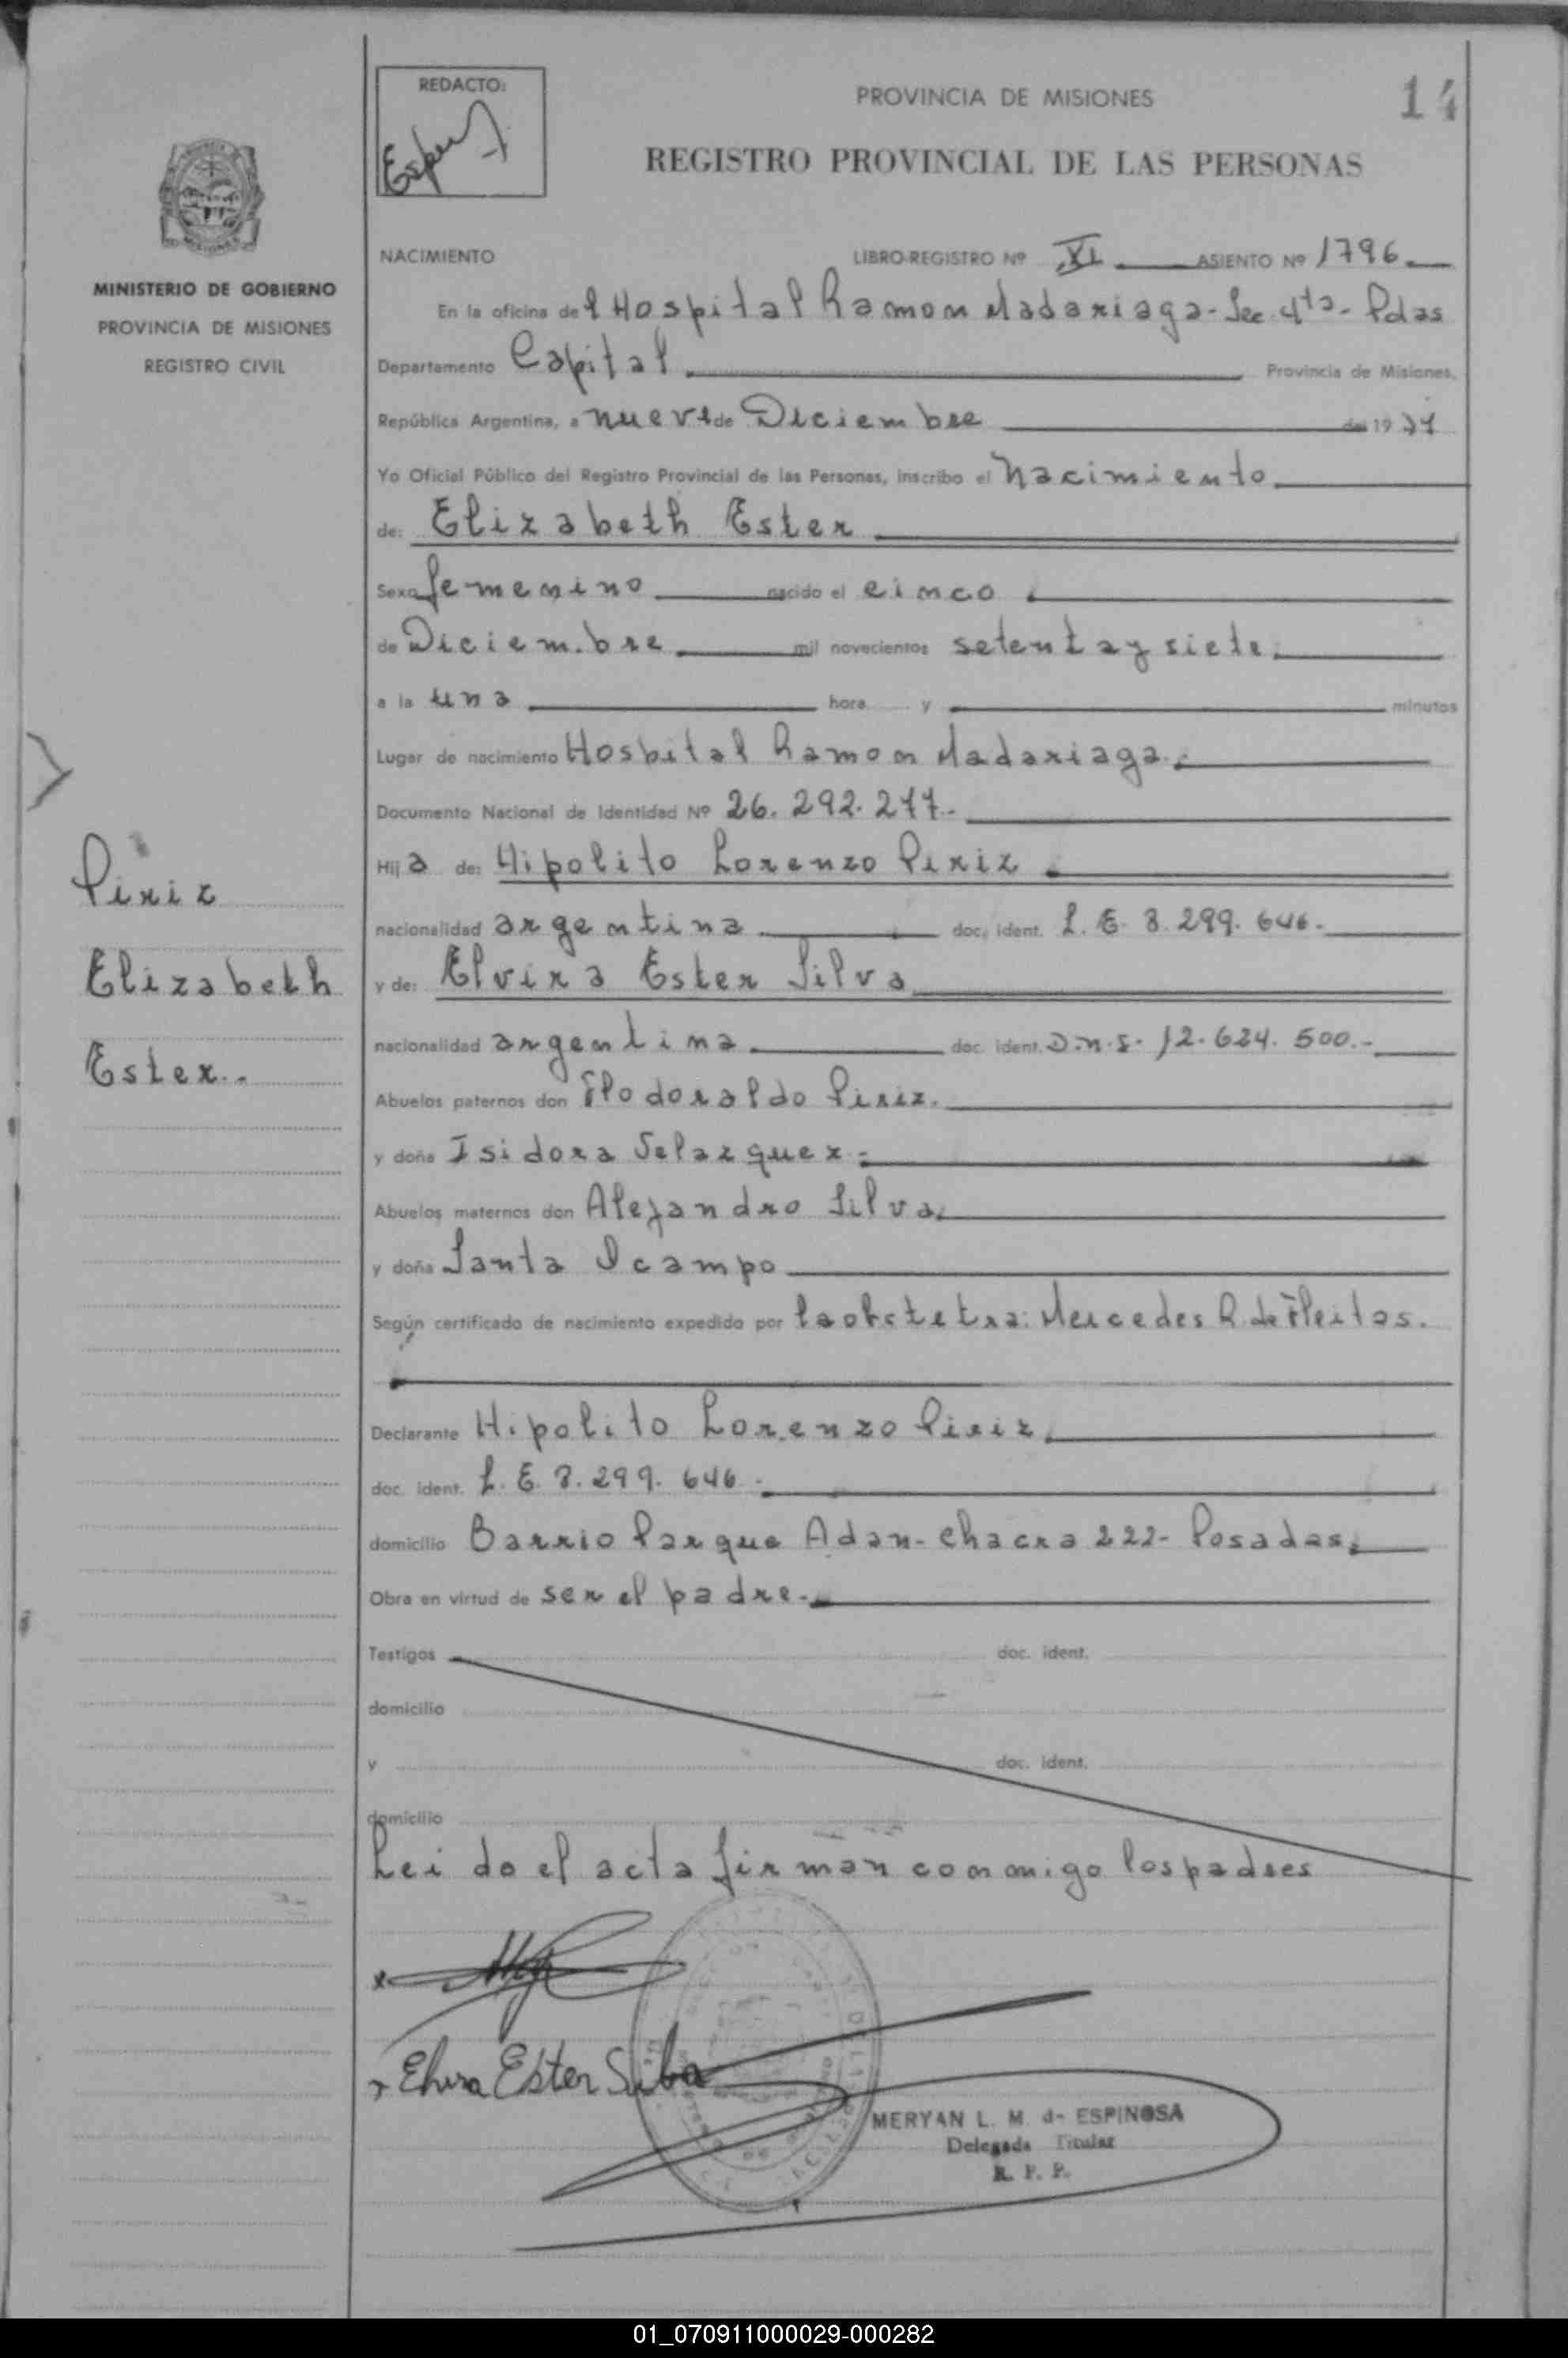 REDACTO:
PROVINCIA DE MISIONES
14
REGISTRO PROVINCIAL DE LAS PERSONAS
MINISTERIO DE GOBIERNO
PROVINCIA DE MISIONES
REGISTRO CIVIL
NACIMIENTO LIBRO-REGISTRO Nº XI ASIENTO Nº 1796
En la oficina del Hospital Ramon Madariaga - Sec 4ta - Pdas
Departamento Capital Provincia de Misiones,
República Argentina, a nueve de Diciembre de 1977
Yo Oficial Público del Registro Provincial de las Personas, inscribo el Nacimiento
de: Elizabeth Ester
Sexo femenino nacido el cinco
de Diciembre mil novecientos setenta y siete
a la una hora y minutos
Lugar de nacimiento Hospital Ramon Madariaga.-
Documento Nacional de Identidad Nº 26.292.277.-
Hija de: Hipolito Lorenzo Piriz
nacionalidad argentina doc. ident. L.E. 8.299.646.-
y de: Elvira Ester Silva
nacionalidad argentina doc. ident. D.N.I. 12.624.500.-
Abuelos paternos don Flodoraldo Piriz.
y doña Isidora Velazquez.-
Abuelos maternos don Alejandro Silva
y doña Santa Ocampo
Según certificado de nacimiento expedido por la obstetra: Mercedes R. de Fleitas.
Declarante Hipolito Lorenzo Piriz
doc. ident. L.E. 8.299.646.-
domicilio Barrio Parque Adan - Chacra 222 - Posadas
Obra en virtud de ser el padre.-
Testigos doc. ident.
domicilio
y doc. ident.
domicilio
Leido el acta firman conmigo los padres
Elvira Ester Silva
MERYAN L. M. de ESPINOSA
Delegada Titular
R. P. P.
Piriz
Elizabeth
Ester.-
01_070911000029-000282